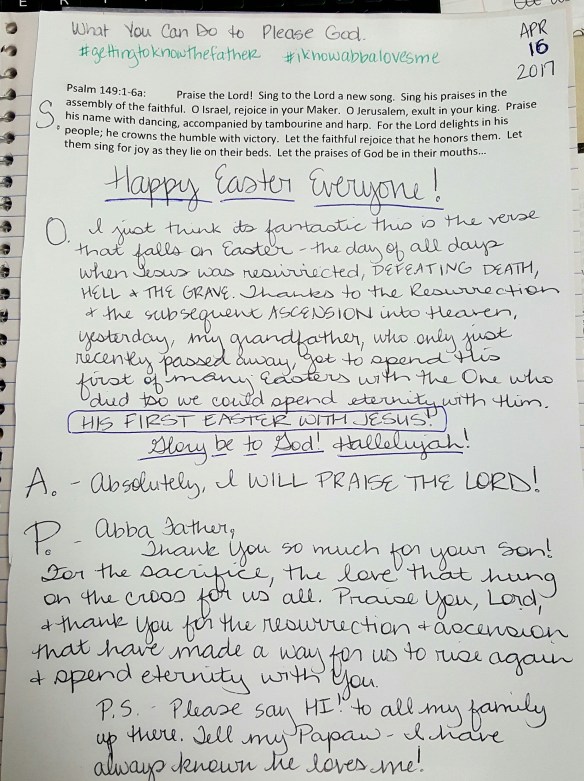 What You Can Do to Please God.
#gettingtoknowthefather #iknowabbalovesme
APR
16
2017
S.
Psalm 149:1-6a: Praise the Lord! Sing to the Lord a new song. Sing his praises in the
assembly of the faithful. O Israel, rejoice in your Maker. O Jerusalem, exult in your king. Praise
his name with dancing, accompanied by tambourine and harp. For the Lord delights in his
people; he crowns the humble with victory. Let the faithful rejoice that he honors them. Let
them sing for joy as they lie on their beds. Let the praises of God be in their mouths...
Happy Easter Everyone!
O. I just think its fantastic this is the verse
that falls on Easter - the day of all days
when Jesus was resurrected, DEFEATING DEATH,
HELL & THE GRAVE. Thanks to the Resurrection
& the subsequent ASCENSION into Heaven,
yesterday, my grandfather, who only just
recently passed away, got to spend His
first of many Easters with the One who
died so we could spend eternity with Him.
HIS FIRST EASTER WITH JESUS!
Glory be to God! Hallelujah!
A. - Absolutely, I WILL PRAISE THE LORD!
P. - Abba Father,
Thank You so much for your Son!
For the sacrifice, the love that hung
on the cross for us all. Praise You, Lord,
& thank You for the resurrection & ascension
that have made a way for us to rise again
& spend eternity with You.
P.S. - Please say HI! to all my family
up there. Tell my Papaw - I have
always known he loves me!